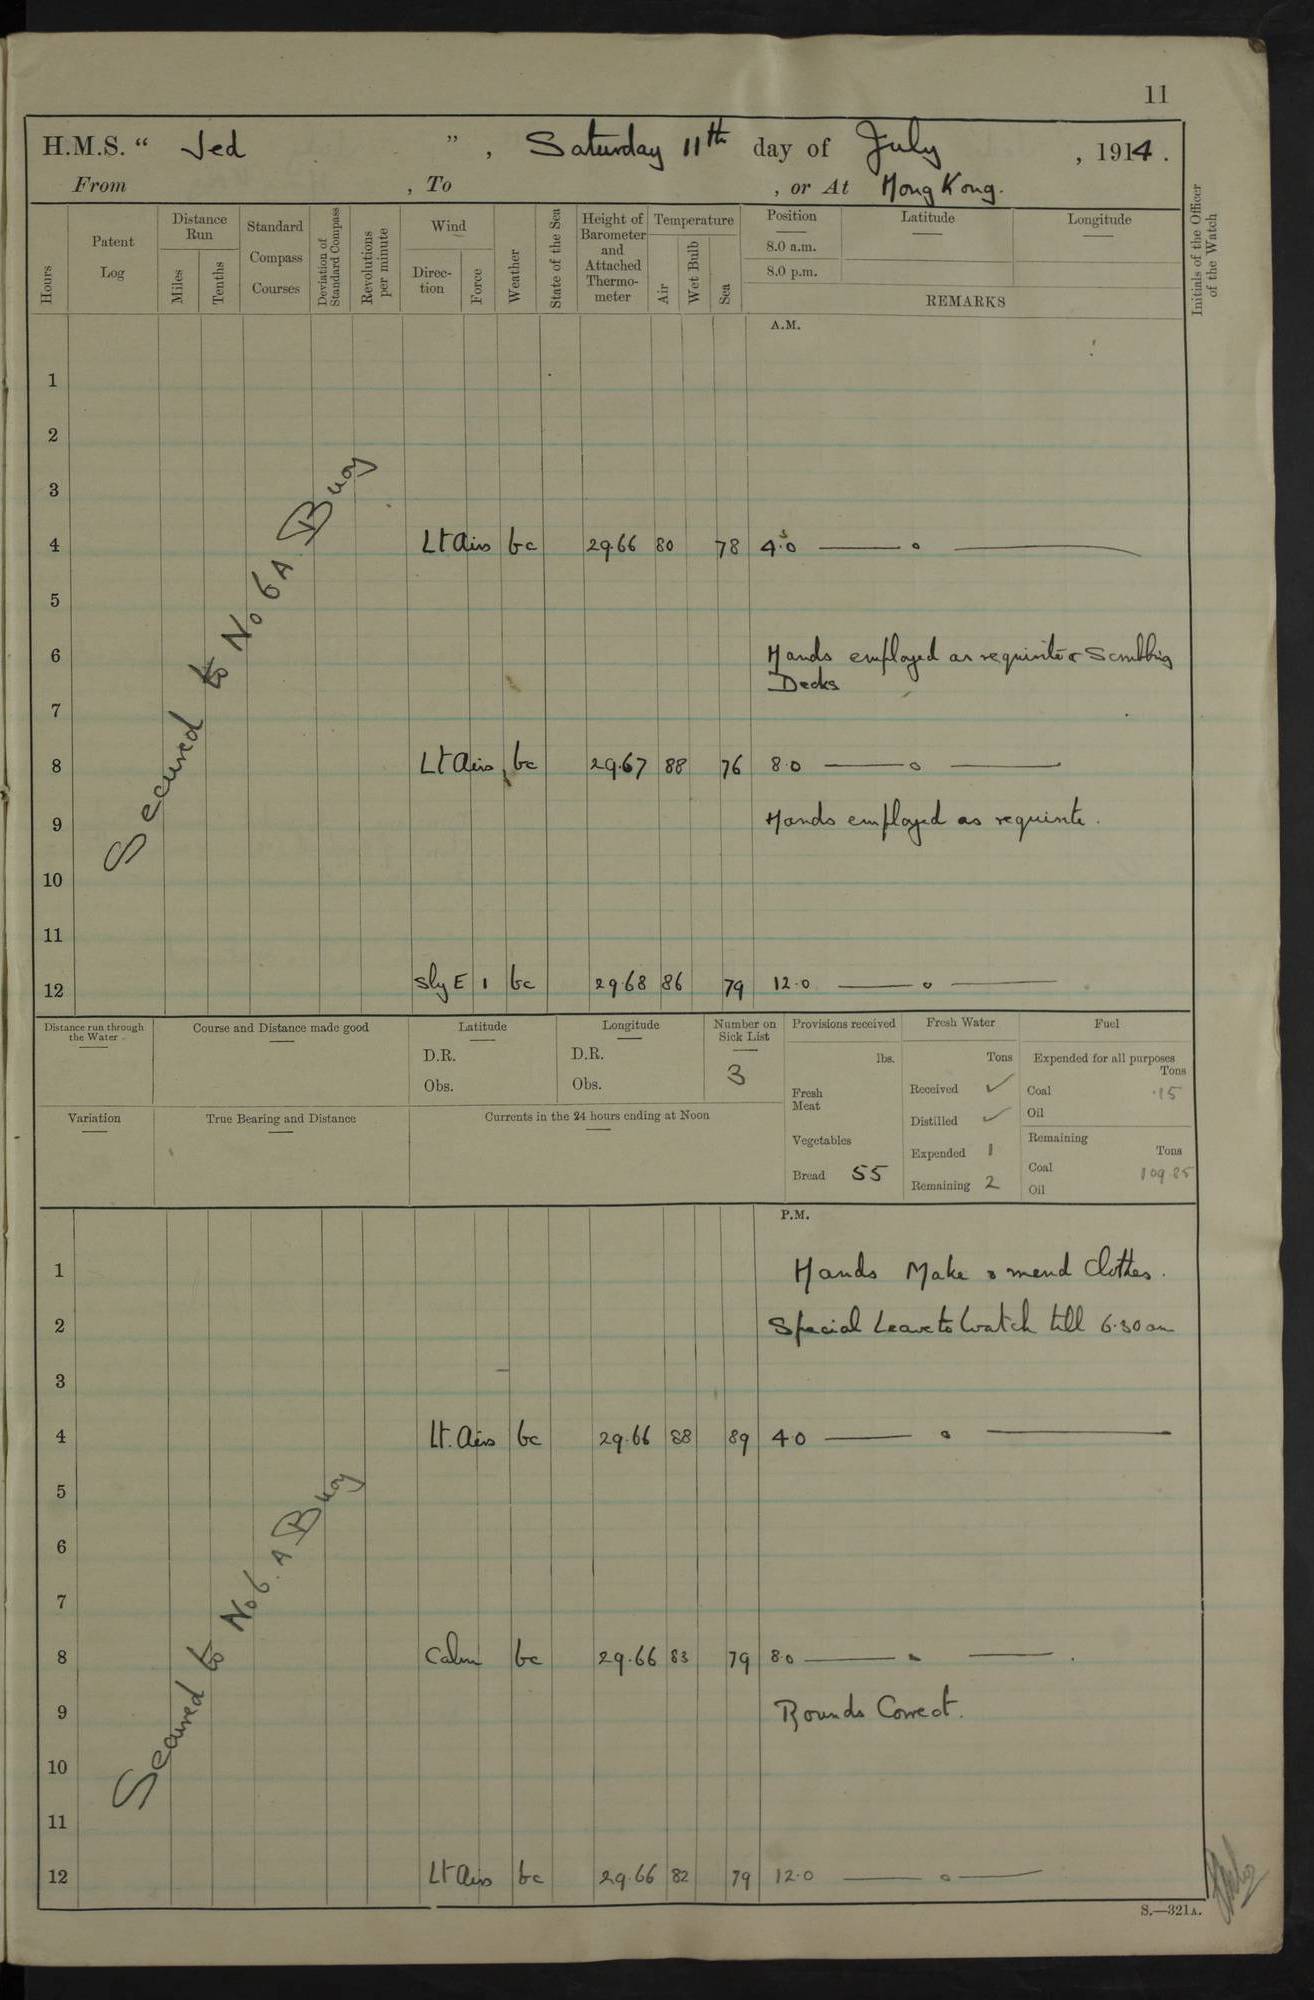 11
H.M.S. " Jed ", Saturday 11th day of July, 1914.
From , To , or At Hong Kong.
Hours
Patent Log
Distance Run
Miles
Tenths
Standard Compass Courses
Deviation of Standard Compass
Revolutions per minute
Wind
Direc-tion
Force
Weather
State of the Sea
Height of Barometer and Attached Thermo-meter
Temperature
Air
Wet Bulb
Sea
Position
8.0 a.m.
8.0 p.m.
Latitude
Longitude
REMARKS
Initials of the Officer of the Watch
A.M.
Secured to No 6A. Buoy
1
2
3
4 Lt Airs bc 29.66 80 78 4.0 — o —
5
6 Hands employed as requisite & Scrubbing
Decks
7
8 Lt Airs bc 29.67 88 76 8.0 — o —
9 Hands employed as requisite.
10
11
12 Sly E 1 bc 29.68 86 79 12.0 — o —
Distance run through the Water
Course and Distance made good
Latitude
D.R.
Obs.
Longitude
D.R.
Obs.
Number on Sick List
3
Provisions received
lbs.
Fresh Meat
Vegetables
Bread 55
Fresh Water
Tons
Received ✓
Distilled ✓
Expended 1
Remaining 2
Fuel
Expended for all purposes
Tons
Coal .15
Oil
Remaining
Tons
Coal 109.85
Oil
Variation
True Bearing and Distance
Currents in the 24 hours ending at Noon
P.M.
Secured to No 6. A Buoy
1 Hands Make & mend Clothes.
2 Special Leave to Watch till 6.30 am
3
4 Lt. Airs bc 29.66 88 89 4.0 — o —
5
6
7
8 Calm bc 29.66 83 79 8.0 — " —
9 Rounds Correct.
10
11
12 Lt Airs bc 29.66 82 79 12.0 — o —
S.—321A.